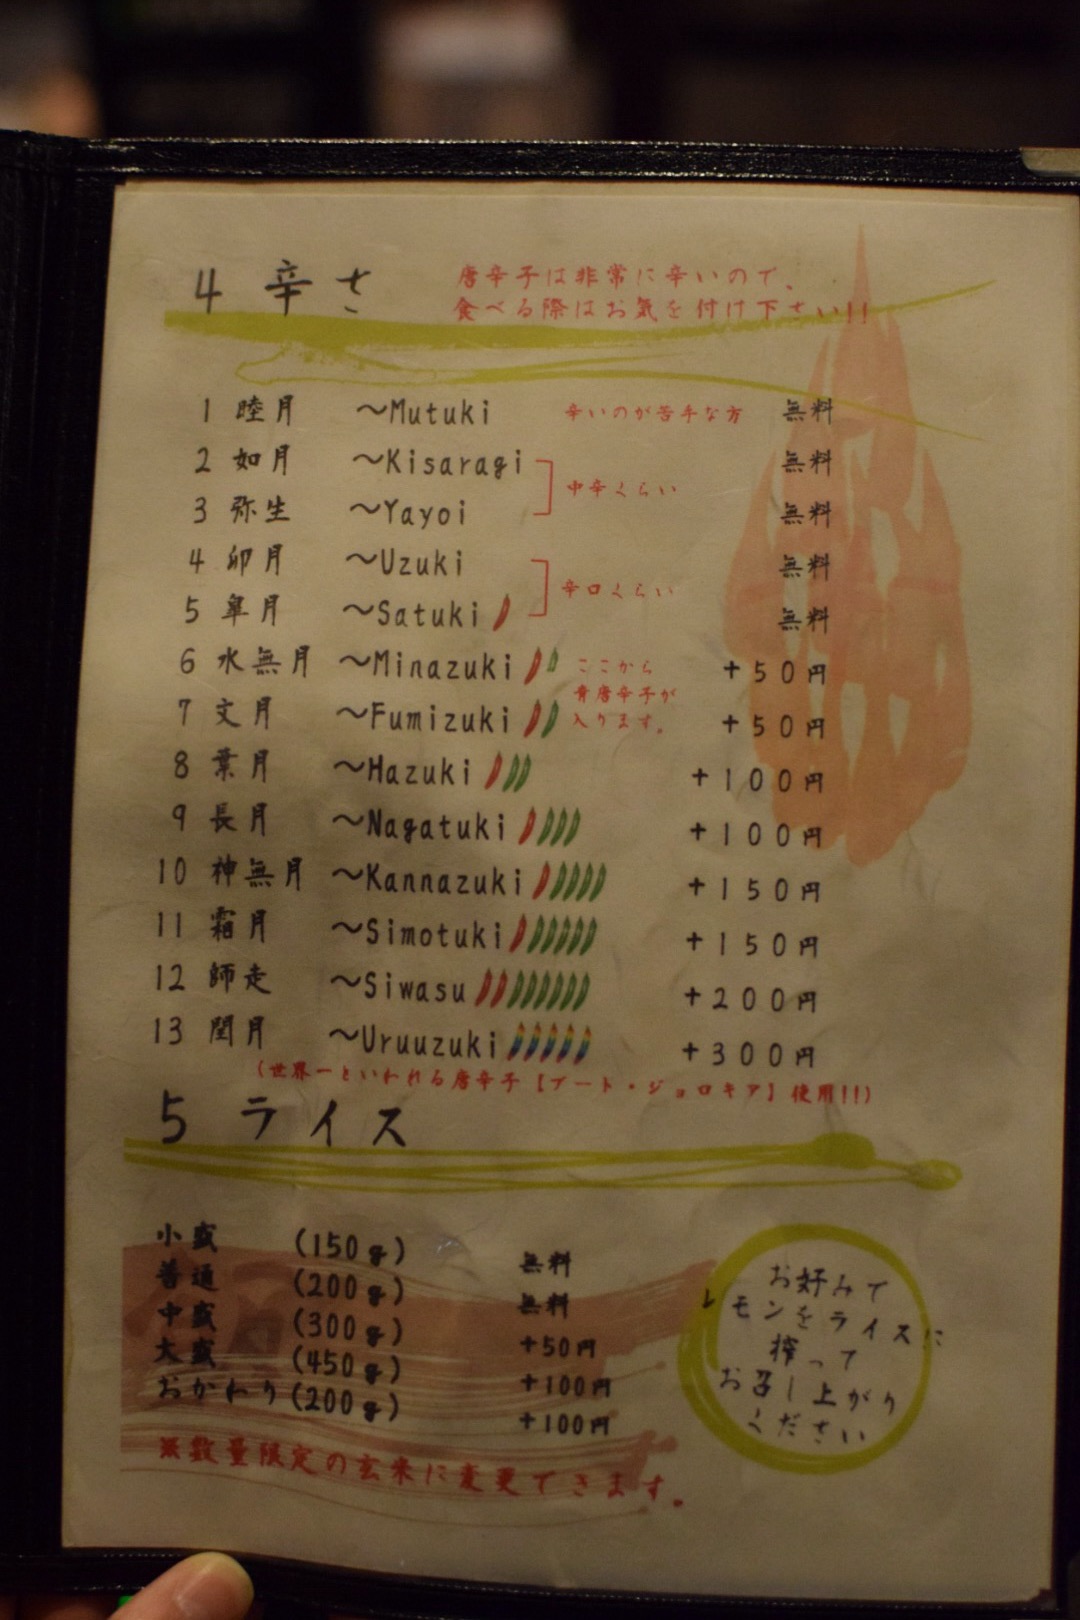 4 辛さ
唐辛子は非常に辛いので、
食べる際はお気を付け下さい!!
1 睦月 ～Mutuki 辛いのが苦手な方 無料
2 如月 ～Kisaragi 無料
中辛くらい
3 弥生 ～Yayoi 無料
4 卯月 ～Uzuki 無料
辛口くらい
5 皐月 ～Satuki 無料
6 水無月 ～Minazuki +50円
ここから
青唐辛子が
入ります。
7 文月 ～Fumizuki +50円
8 葉月 ～Hazuki +100円
9 長月 ～Nagatuki +100円
10 神無月 ～Kannazuki +150円
11 霜月 ～Simotuki +150円
12 師走 ～Siwasu +200円
13 閏月 ～Uruuzuki +300円
(世界一といわれる唐辛子【ブート・ジョロキア】使用!!)
5 ライス
小盛 (150g) 無料
普通 (200g) 無料
中盛 (300g) +50円
大盛 (450g) +100円
おかわり (200g) +100円
※数量限定の玄米に変更できます。
お好みで
レモンをライスに
搾って
お召し上がり
ください